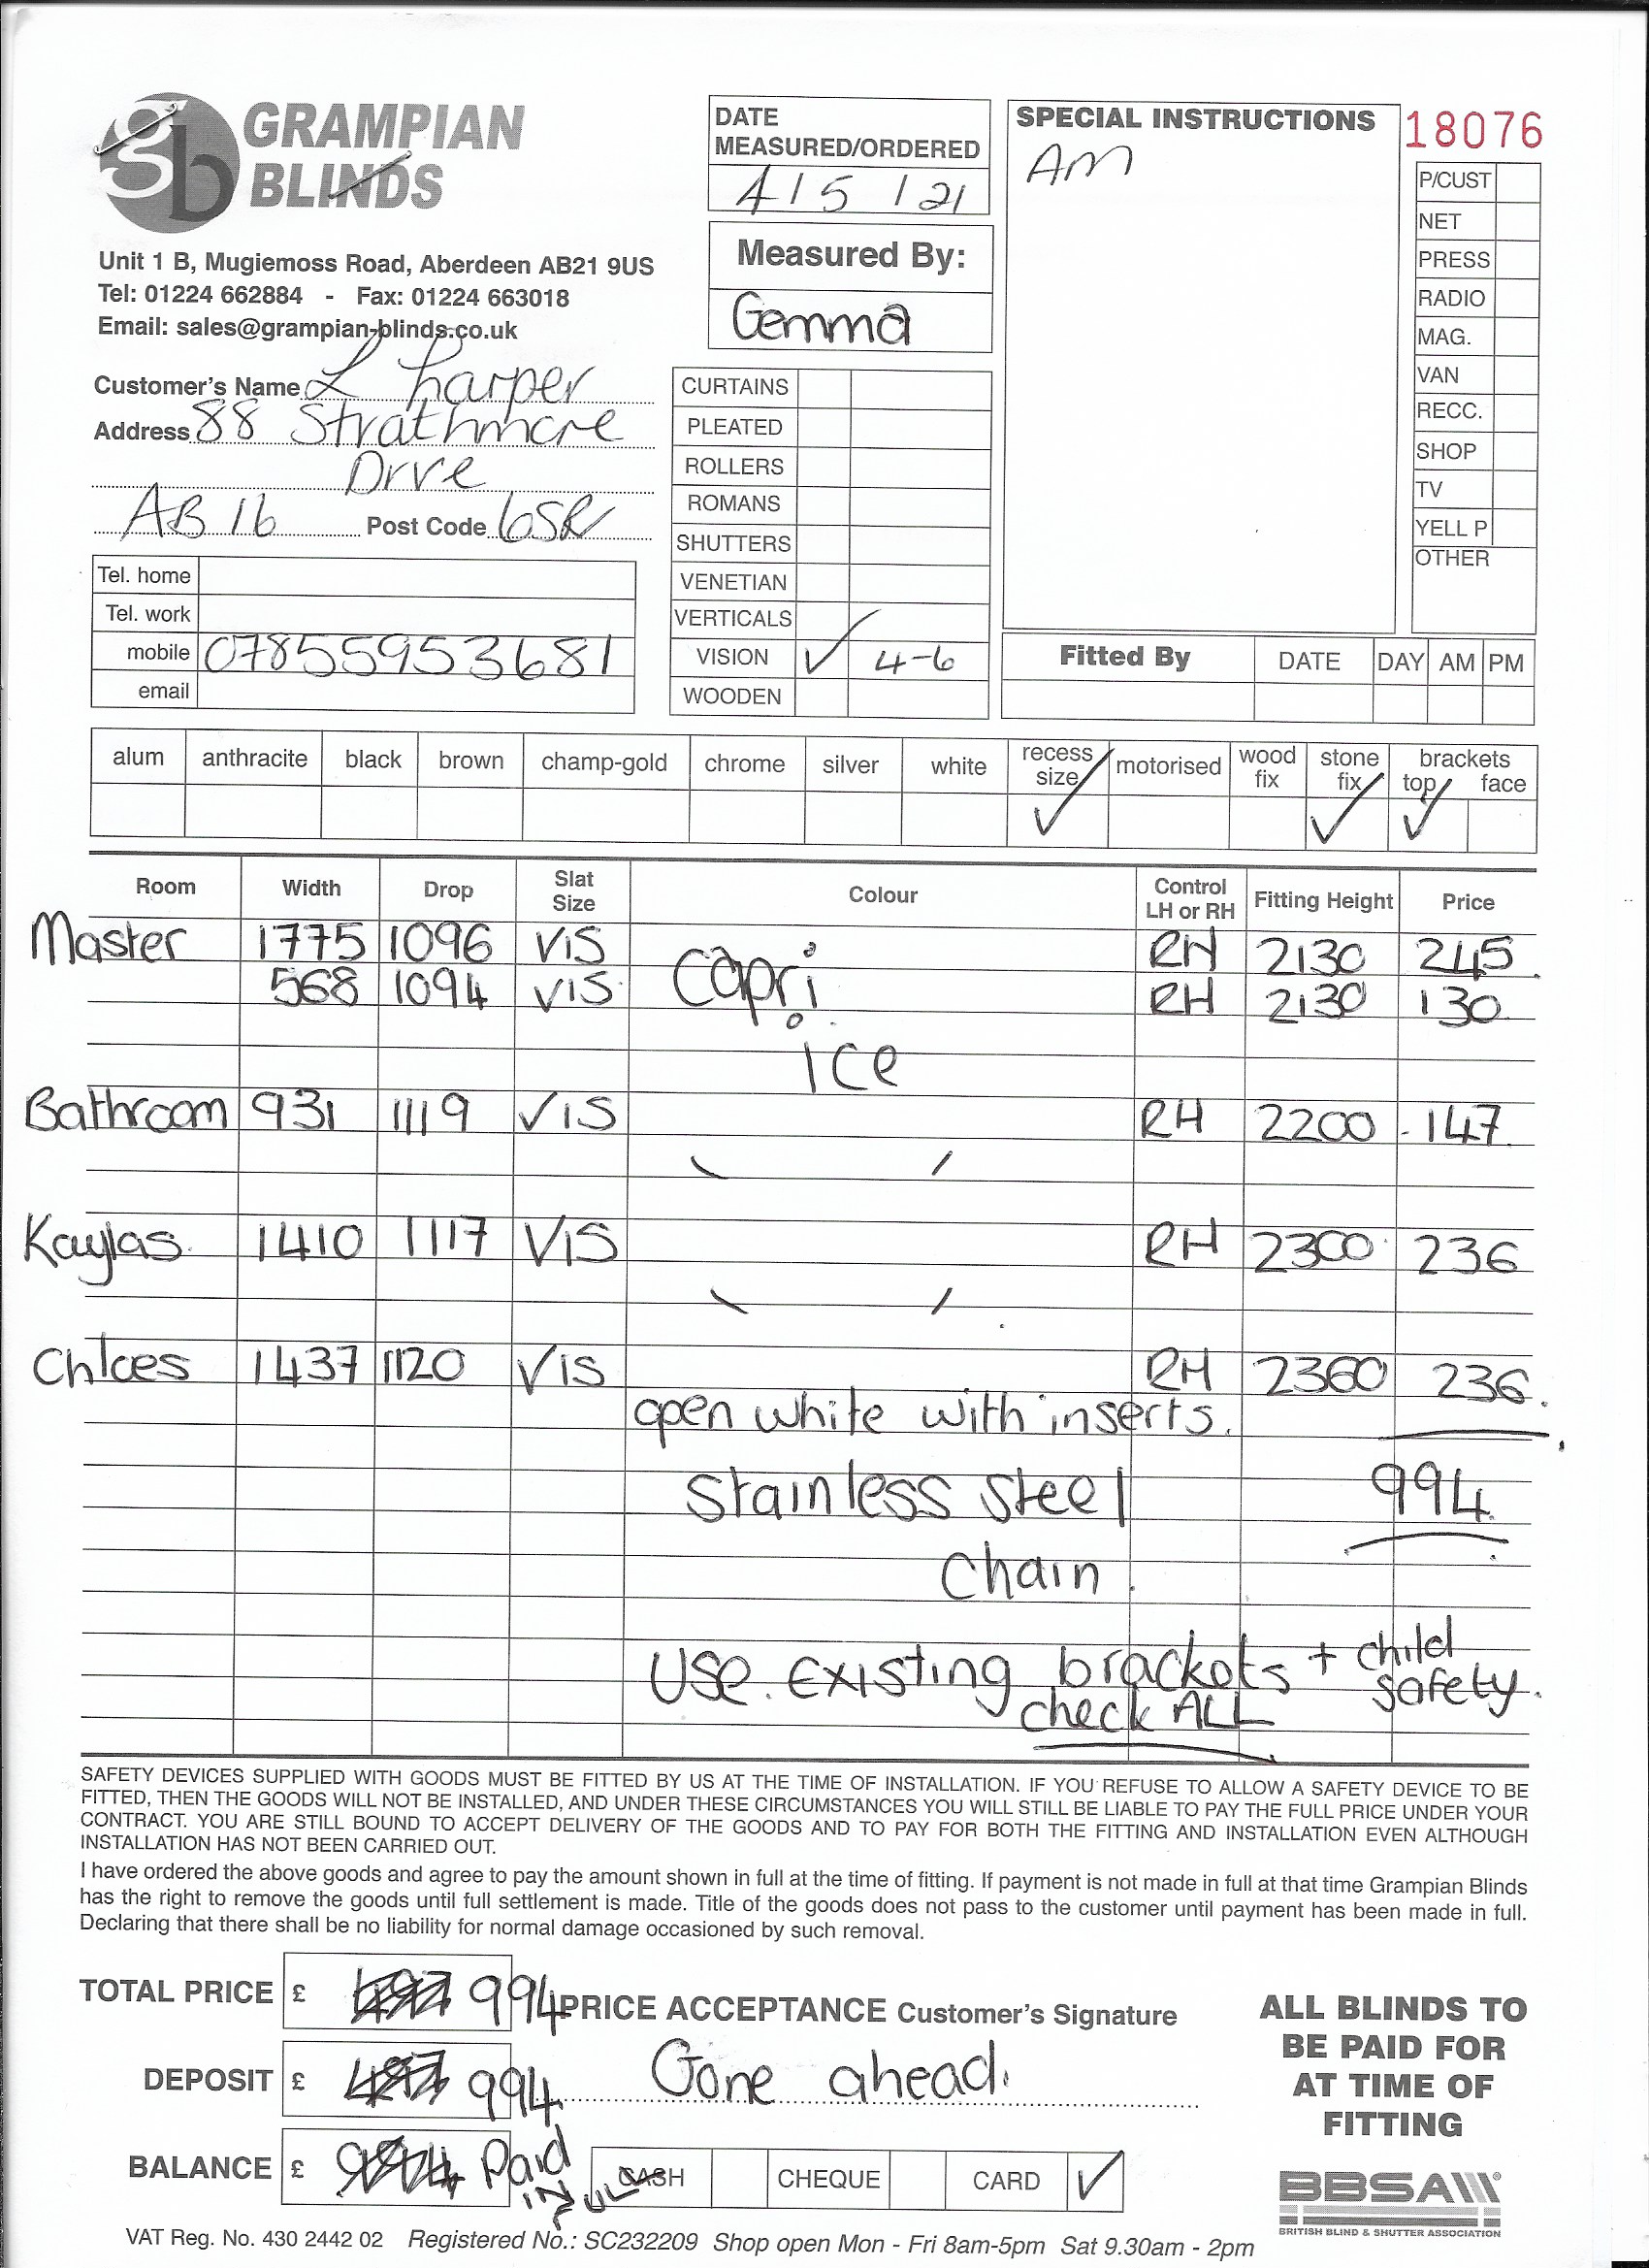 gb GRAMPIAN BLINDS
Unit 1 B, Mugiemoss Road, Aberdeen AB21 9US
Tel: 01224 662884 - Fax: 01224 663018
Email: sales@grampian-blinds.co.uk
Customer's Name L Harper
Address 88 Strathmore
Drve
AB16 Post Code 6SR
Tel. home
Tel. work
mobile 07855953681
email
DATE
MEASURED/ORDERED
4/5/21
Measured By:
Gemma
CURTAINS
PLEATED
ROLLERS
ROMANS
SHUTTERS
VENETIAN
VERTICALS
VISION ✓ 4-6
WOODEN
SPECIAL INSTRUCTIONS
AM
18076
P/CUST
NET
PRESS
RADIO
MAG.
VAN
RECC.
SHOP
TV
YELL P
OTHER
Fitted By DATE DAY AM PM
alum anthracite black brown champ-gold chrome silver white recess size ✓ motorised wood fix stone fix ✓ brackets top ✓ face
Room Width Drop Slat Size Colour Control LH or RH Fitting Height Price
Master 1775 1096 VIS Capri RH 2130 245
568 1094 VIS RH 2130 130
Ice
Bathroom 931 1119 VIS RH 2200 147
Kaylas 1410 1117 VIS RH 2300 236
Chloes 1437 1120 VIS RH 2360 236
open white with inserts.
Stainless Steel 994
Chain
Use Existing brackets + child safety.
check ALL
SAFETY DEVICES SUPPLIED WITH GOODS MUST BE FITTED BY US AT THE TIME OF INSTALLATION. IF YOU REFUSE TO ALLOW A SAFETY DEVICE TO BE
FITTED, THEN THE GOODS WILL NOT BE INSTALLED, AND UNDER THESE CIRCUMSTANCES YOU WILL STILL BE LIABLE TO PAY THE FULL PRICE UNDER YOUR
CONTRACT. YOU ARE STILL BOUND TO ACCEPT DELIVERY OF THE GOODS AND TO PAY FOR BOTH THE FITTING AND INSTALLATION EVEN ALTHOUGH
INSTALLATION HAS NOT BEEN CARRIED OUT.
I have ordered the above goods and agree to pay the amount shown in full at the time of fitting. If payment is not made in full at that time Grampian Blinds
has the right to remove the goods until full settlement is made. Title of the goods does not pass to the customer until payment has been made in full.
Declaring that there shall be no liability for normal damage occasioned by such removal.
TOTAL PRICE £ 994 PRICE ACCEPTANCE Customer's Signature
DEPOSIT £ 994 Gone ahead.
BALANCE £ Paid IN FULL
CASH CHEQUE CARD ✓
ALL BLINDS TO
BE PAID FOR
AT TIME OF
FITTING
BBSA
BRITISH BLIND & SHUTTER ASSOCIATION
VAT Reg. No. 430 2442 02 Registered No.: SC232209 Shop open Mon - Fri 8am-5pm Sat 9.30am - 2pm